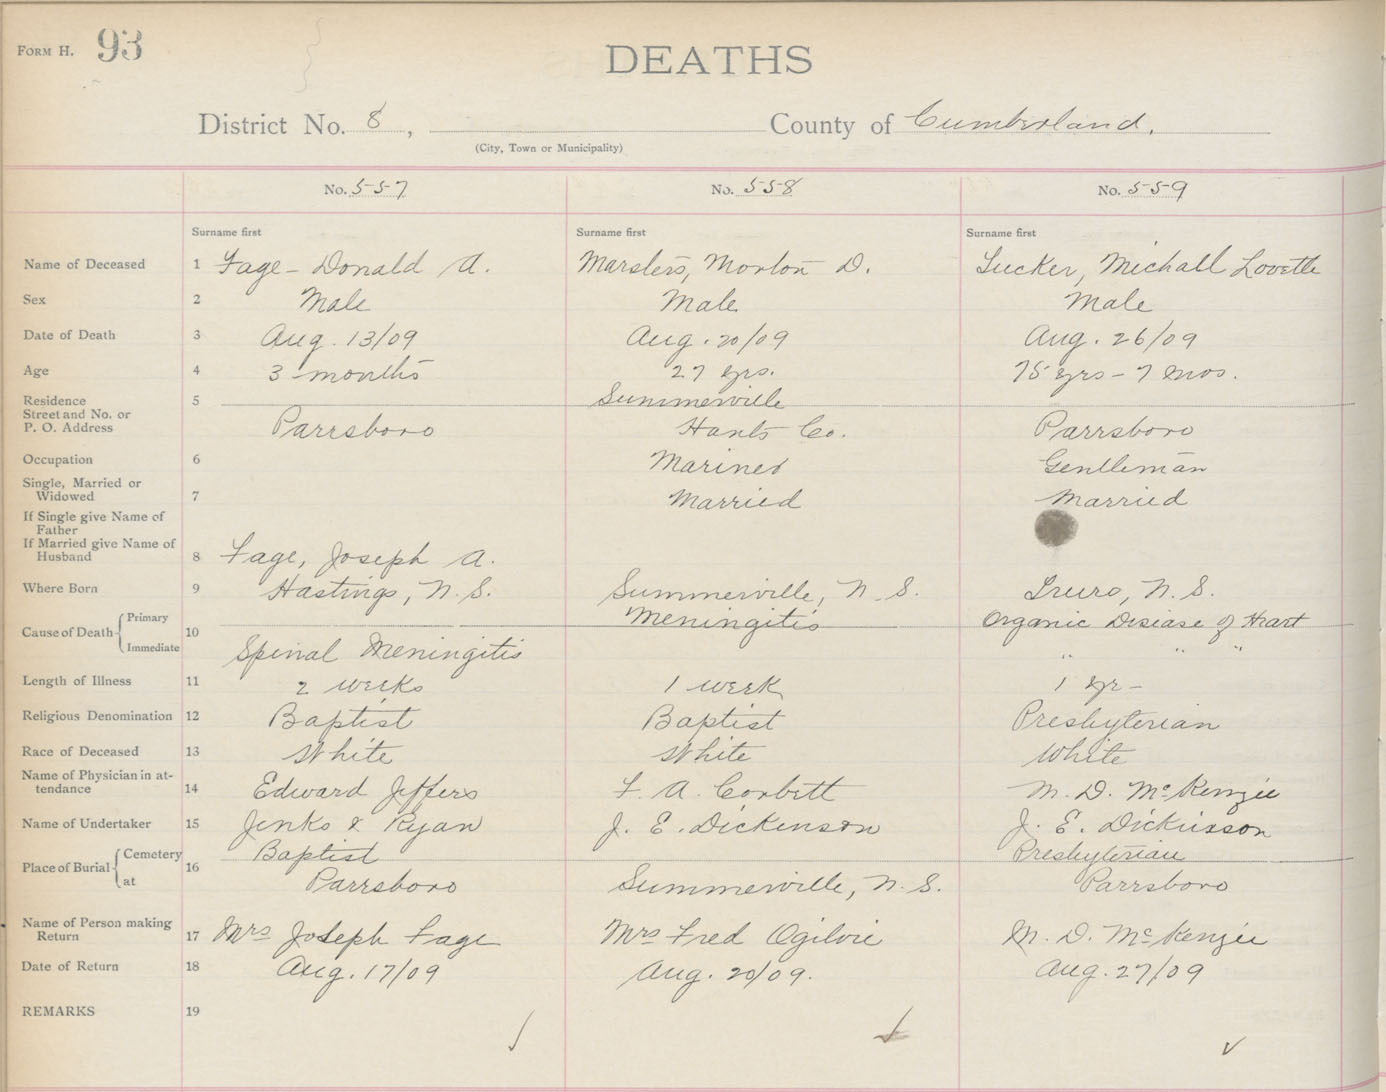 FORM H. 93
DEATHS
District No. 8, County of Cumberland.
(City, Town or Municipality)
No. 557 No. 558 No. 559
Surname first Surname first Surname first
Name of Deceased 1 Fage - Donald A. Marsters, Morton D. Tucker, Michall Lovette
Sex 2 Male Male Male
Date of Death 3 Aug. 13/09 Aug. 20/09 Aug. 26/09
Age 4 3 months 27 yrs. 75 yrs - 7 mos.
Residence 5 Summerville
Street and No. or
P. O. Address Parrsboro Hants Co. Parrsboro
Occupation 6 Mariner Gentleman
Single, Married or
Widowed 7 Married Married
If Single give Name of
Father
If Married give Name of
Husband 8 Fage, Joseph A.
Where Born 9 Hastings, N. S. Summerville, N. S. Truro, N. S.
Cause of Death 10 Primary Meningitis Organic Disiase of Heart
Immediate Spinal Meningitis " " "
Length of Illness 11 2 weeks 1 week 1 yr -
Religious Denomination 12 Baptist Baptist Presbyterian
Race of Deceased 13 White White White
Name of Physician in at-
tendance 14 Edward Jeffers F. A. Corbett M. D. McKenzie
Name of Undertaker 15 Jenks & Ryan J. E. Dickenson J. E. Dickinson
Place of Burial 16 Cemetery Baptist Presbyterian
at Parrsboro Summerville, N. S. Parrsboro
Name of Person making
Return 17 Mrs Joseph Fage Mrs Fred Ogilvie M. D. McKenzie
Date of Return 18 Aug. 17/09 Aug. 20/09. Aug. 27/09
REMARKS 19